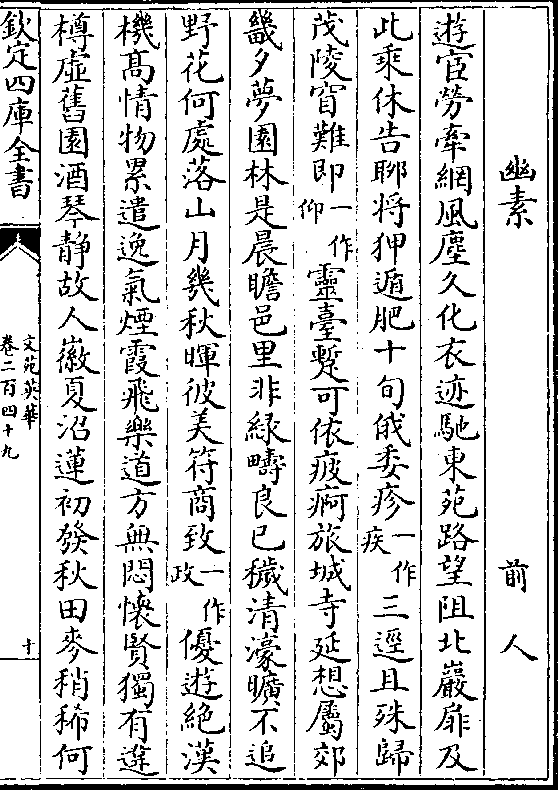 幽素　前人
遊宦勞牽網風塵久化衣迹馳東苑路望阻北巖扉及
此乘休告聊将狎遁肥十旬俄委疹一作疾三逕且殊歸
茂陵寊難即一作仰靈臺蹔可依疲痾旅城寺延想屬郊
畿夕夢園林是晨瞻邑里非綠疇良已穢清濠曠不追
野花何處落山月幾秋暉彼美符商致一作政優遊絶漢
機髙情物累遣逸氣煙霞飛樂道方無悶懐賢獨有違
樽虛舊園酒琴靜故人徽夏沼蓮初發秋田麥稍稀何
欽定四庫全書
文苑英華
卷二百四十九
十